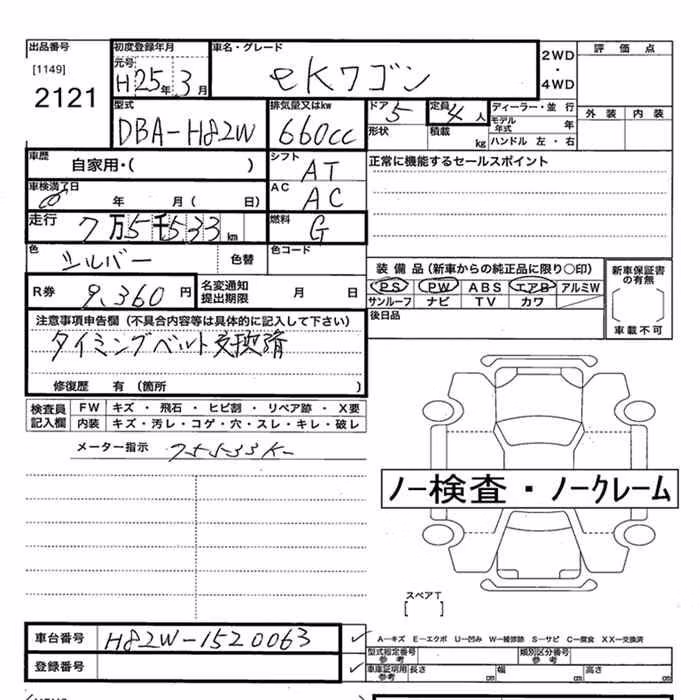 出品番号 初度登録年月 車名・グレード 2WD ・ 4WD 評価点
[1149] 元号 H25年3月 eKワゴン
2121 外装 内装
型式 排気量又はkw ドア 5 定員 4人 ディーラー・並行
DBA-H82W 660cc 形状 積載 kg モデル年式 年
ハンドル 左・右
車歴 自家用・( ) シフト AT 正常に機能するセールスポイント
車検満了日 年 月( 日) AC AC
走行 7万5千533km 燃料 G
色 シルバー 色替 色コード
装備品(新車からの純正品に限り○印) 新車保証書の有無
R券 9,360円 名変通知提出期限 月 日 PS PW ABS エアB アルミW
サンルーフ ナビ TV カワ
注意事項申告欄(不具合内容等は具体的に記入して下さい) 後日品 車載不可
タイミングベルト交換済
修復歴 有(箇所 )
検査員記入欄 FW キズ・飛石・ヒビ割・リペア跡・X要
内装 キズ・汚レ・コゲ・穴・スレ・キレ・破レ
メーター指示 75533K-
ノー検査・ノークレーム
スペアT
[ ]
車台番号 H82W-1520063 A―キズ E―エクボ U―凹み W―補修跡 S―サビ C―腐食 XX―交換済
型式指定番号 参考 類別区分番号 参考
登録番号 車庫証明用 参考 長さ cm 幅 cm 高さ cm